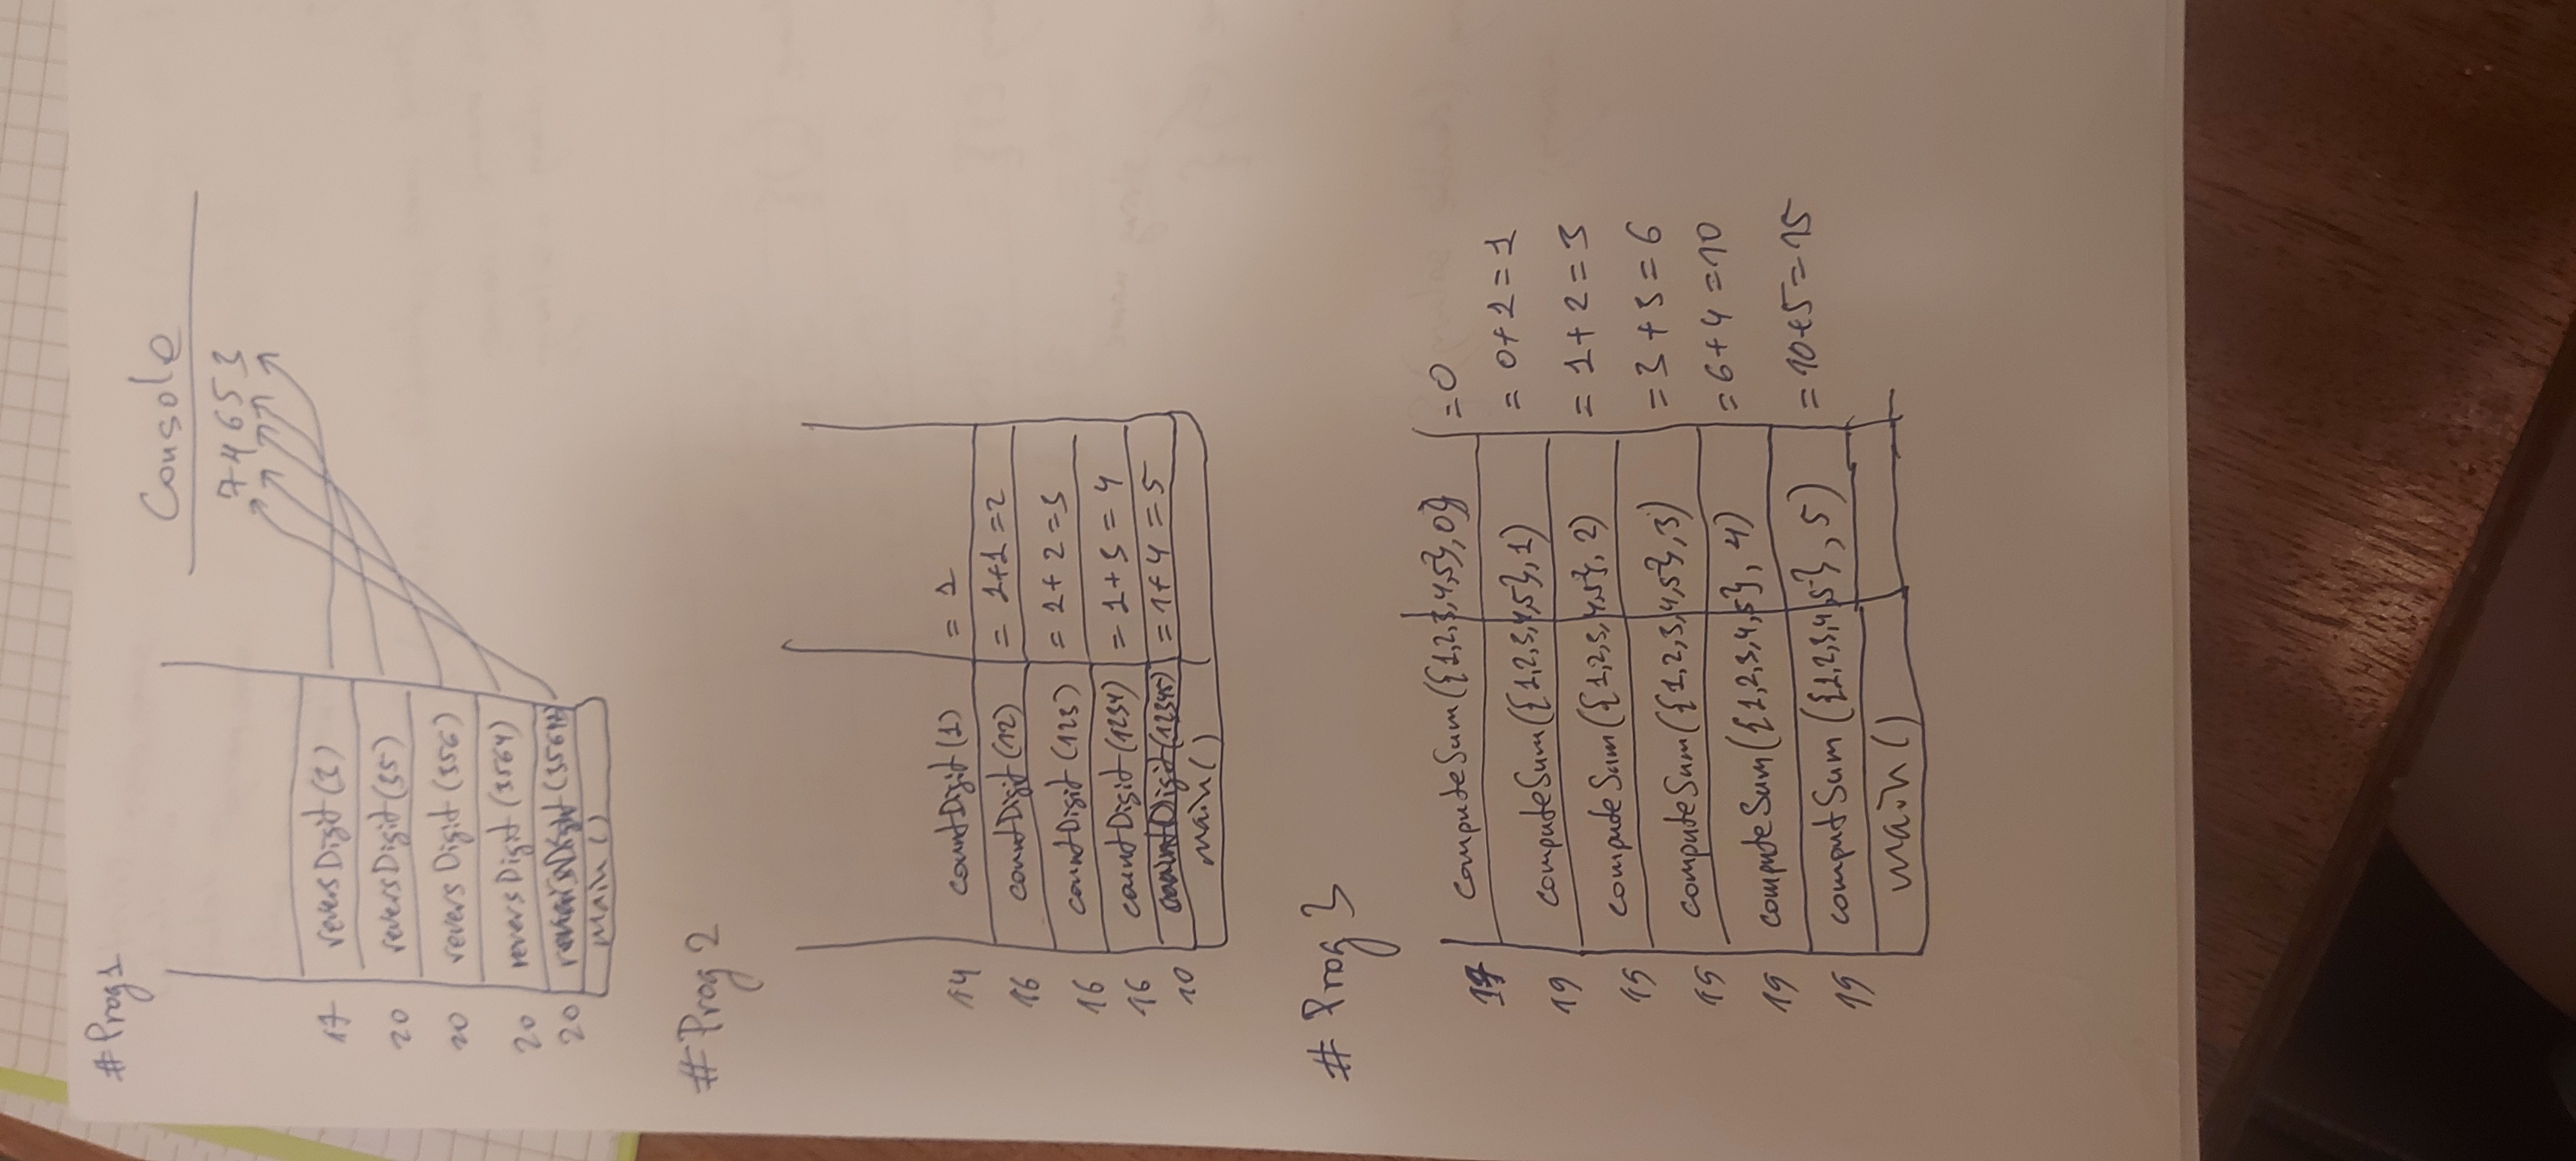 #Prog1
Console
74653
17 reversDigit(3)
20 reversDigit(35)
20 reversDigit(356)
20 reversDigit(3564)
20
main()
#Prog 2
14 countDigit(1) = 1
16 countDigit(12) = 1+1=2
16 countDigit(123) = 1+2=3
16 countDigit(1234) = 1+3=4
10 countDigit(12345) =1+4=5
main()
# Prog 3
17 computeSum({1,2,3,4,5},0) =0
19 computeSum({1,2,3,4,5},1) = 0+1=1
15 computeSum({1,2,3,4,5}, 2) = 1+2=3
15 computeSum({1,2,3,4,5},3) =3+3=6
19 computeSum({1,2,3,4,5}, 4) =6+4=10
15 computSum({1,2,3,4,5}, 5) =10+5=15
main()